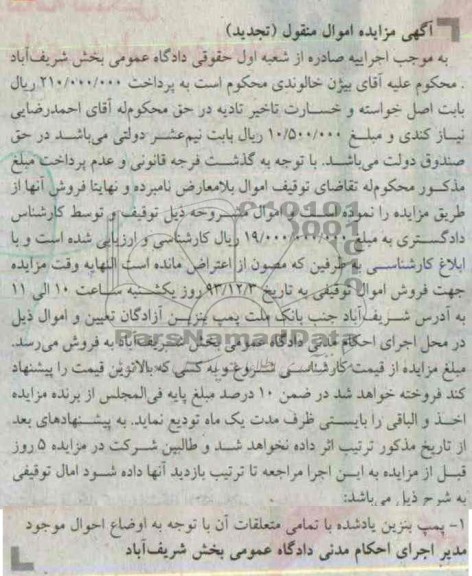 آگهی مزایده اموال منقول (تجدید)
به موجب اجراییه صادره از شعبه اول حقوقی دادگاه عمومی بخش شریف‌آباد
. محکوم علیه آقای بیژن خالوندی محکوم است به پرداخت ۲۱۰/۰۰۰/۰۰۰ ریال
بابت اصل خواسته و خسارت تاخیر تادیه در حق محکوم‌له آقای احمدرضایی
نیاز کندی و مبلغ ۱۰/۵۰۰/۰۰۰ ریال بابت نیم‌عشر دولتی می‌باشد در حق
صندوق دولت می‌باشد. با توجه به گذشت فرجه قانونی و عدم پرداخت مبلغ
مذکور محکوم‌له تقاضای توقیف اموال بلامعارض نامبرده و نهایتا فروش آنها از
طریق مزایده را نموده است و اموال مشروحه ذیل توقیف و توسط کارشناس
دادگستری به مبلغ ۱۹/۰۰۰/۰۰۰/۰۰۰ ریال کارشناسی و ارزیابی شده است و با
ابلاغ کارشناسی به طرفین که مصون از اعتراض مانده است النهایه وقت مزایده
جهت فروش اموال توقیفی به تاریخ ۹۳/۱۲/۳ روز یکشنبه ساعت ۱۰ الی ۱۱
به آدرس شریف‌آباد جنب بانک ملت پمپ بنزین آزادگان تعیین و اموال ذیل
در محل اجرای احکام مدنی دادگاه عمومی بخش شریف‌آباد به فروش می‌رسد.
مبلغ مزایده از قیمت کارشناسی شروع و به کسی که بالاترین قیمت را پیشنهاد
کند فروخته خواهد شد در ضمن ۱۰ درصد مبلغ پایه فی‌المجلس از برنده مزایده
اخذ و الباقی را بایستی ظرف مدت یک ماه تودیع نماید. به پیشنهادهای بعد
از تاریخ مذکور ترتیب اثر داده نخواهد شد و طالبین شرکت در مزایده ۵ روز
قبل از مزایده به این اجرا مراجعه تا ترتیب بازدید آنها داده شود امال توقیفی
به شرح ذیل می‌باشد:
۱- پمپ بنزین یادشده با تمامی متعلقات آن با توجه به اوضاع احوال موجود
مدیر اجرای احکام مدنی دادگاه عمومی بخش شریف‌آباد
ParsNamadData